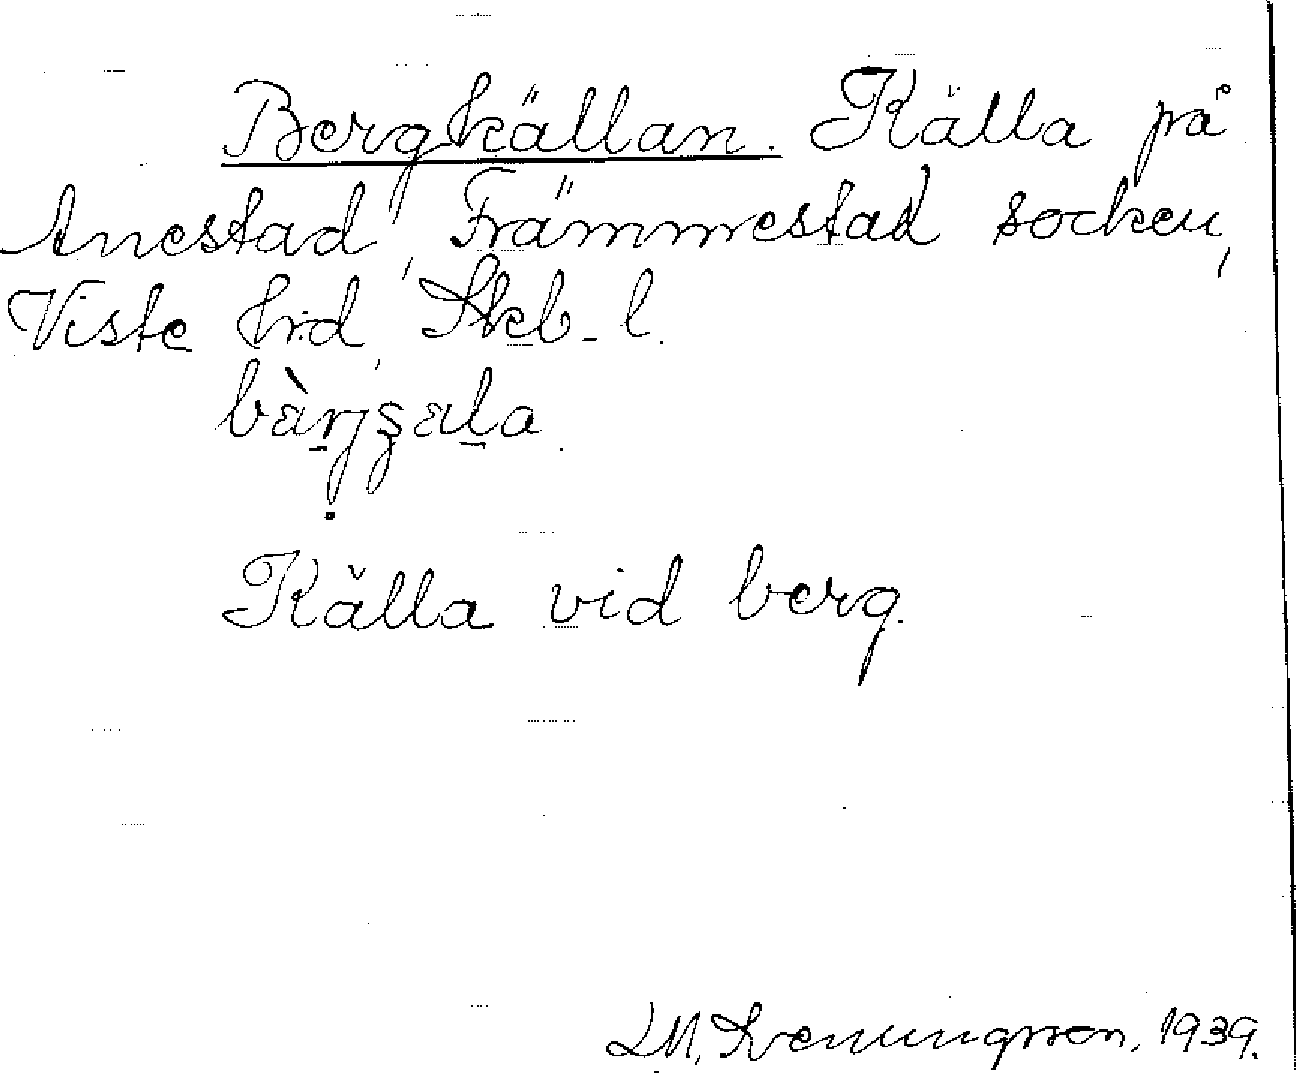 Bergkällan. Källa på
Anestad, Främmestad socken,
Viste hrd, Skb. l.
Källa vid berg.
L.M. Svenungsson, 1939.